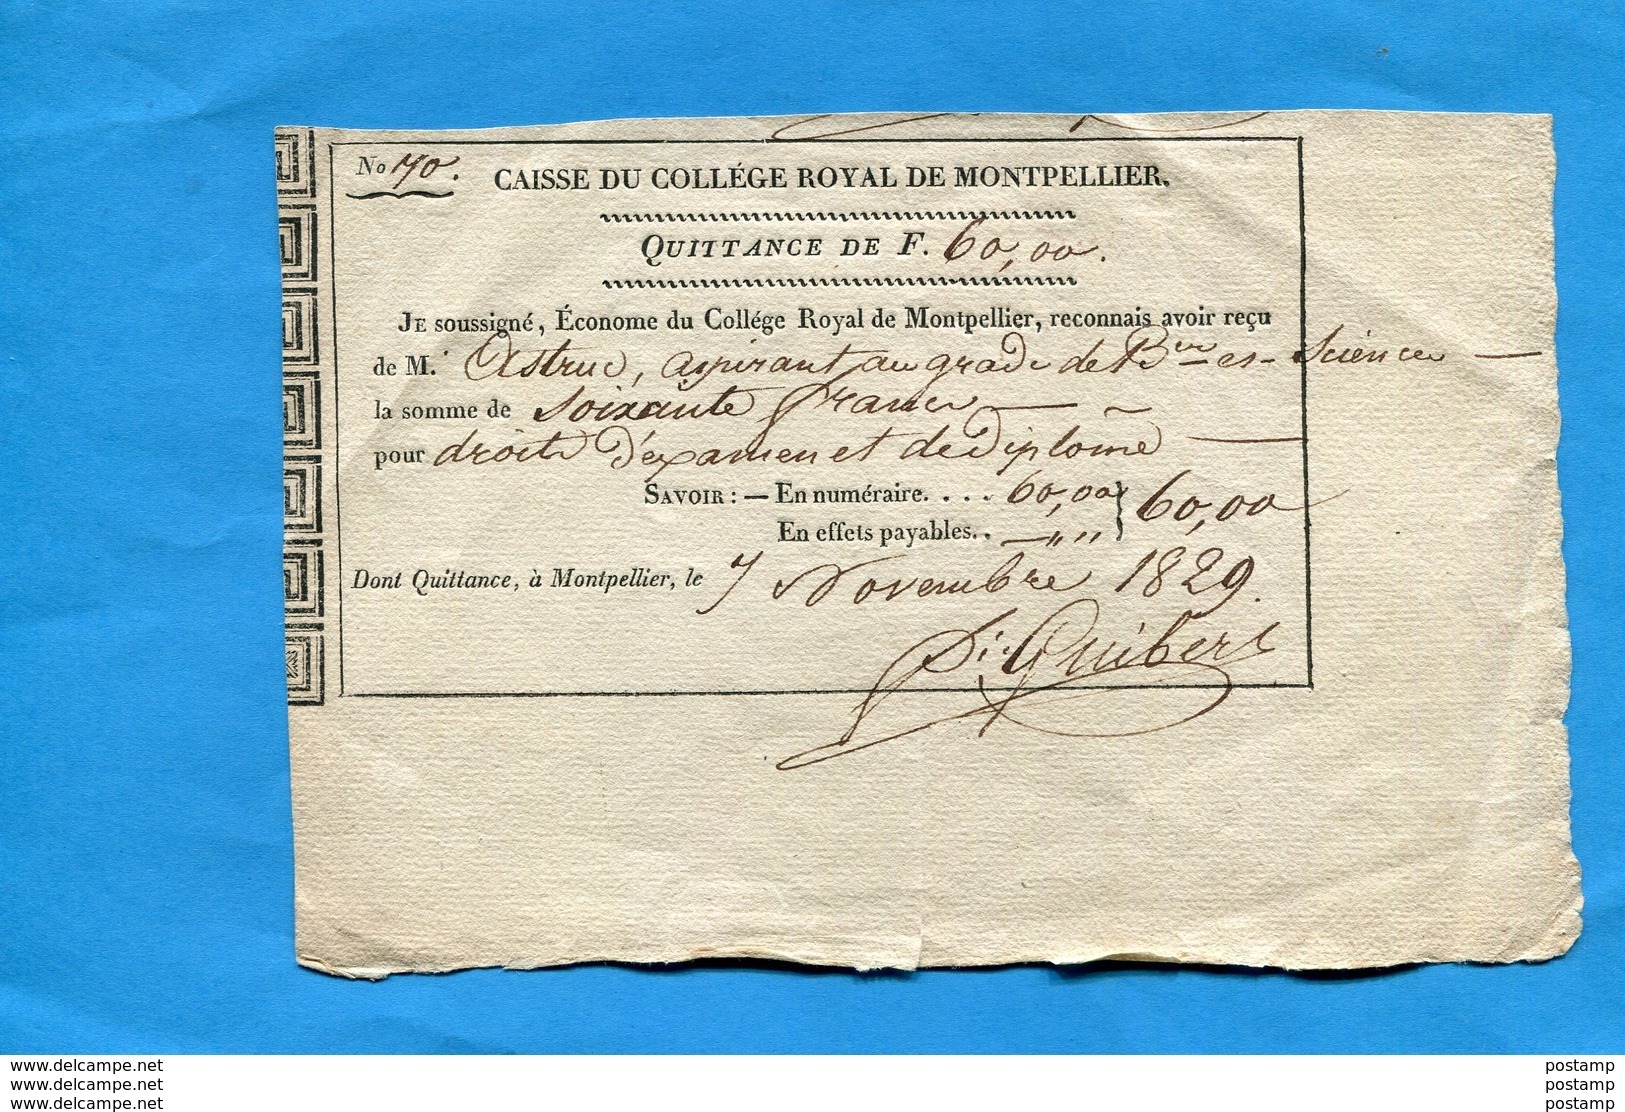 No 70.
CAISSE DU COLLÉGE ROYAL DE MONTPELLIER.
QUITTANCE DE F. 60,00.
JE soussigné, Économe du Collége Royal de Montpellier, reconnais avoir reçu
de M. Astruc, aspirant au grade de Bier es-Sciences
la somme de soixante francs
pour droits d'examen et de Diplome
SAVOIR : — En numéraire. . . . 60,00 } 60,00
En effets payables. . — " "
Dont Quittance, à Montpellier, le 7 Novembre 1829.
Guibert
www.delcampe.net postamp
www.delcampe.net postamp
www.delcampe.net postamp